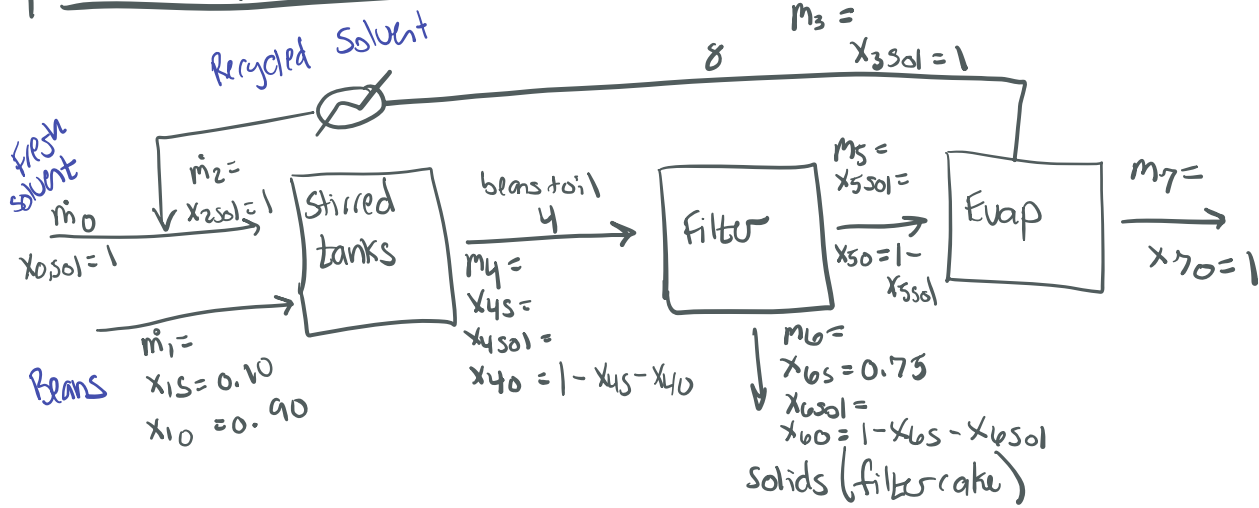 Recycled Solvent
8
m3 =
x3sol = 1
Fresh
solvent
ṁ0
x0,sol = 1
ṁ2 =
x2sol = 1
Stirred
tanks
beans + oil
4
m4 =
x4s =
x4sol =
x4o = 1 - x4s - x4o
Filter
m5 =
x5sol =
x5o = 1 -
x5sol
Evap
m7 =
x7o = 1
Beans
ṁ1 =
x1s = 0.10
x1o = 0.90
m6 =
x6s = 0.75
x6sol =
x6o = 1 - x6s - x6sol
solids (filter cake)